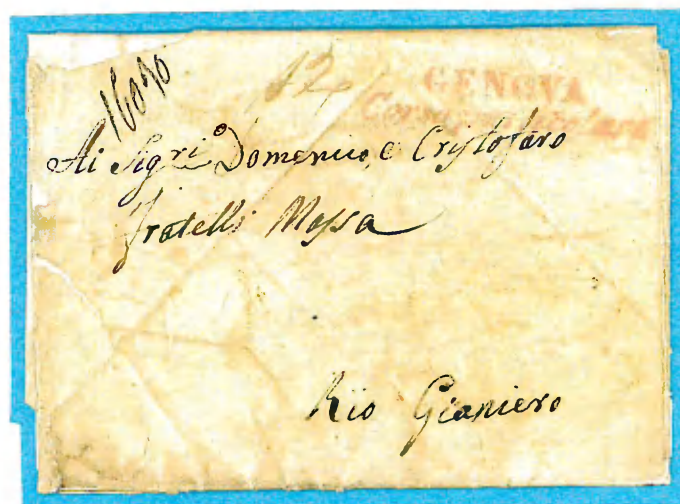 GENOVA
Ai Sigri. Domenico, e Cristofaro
fratelli Massa
Rio Gianiero